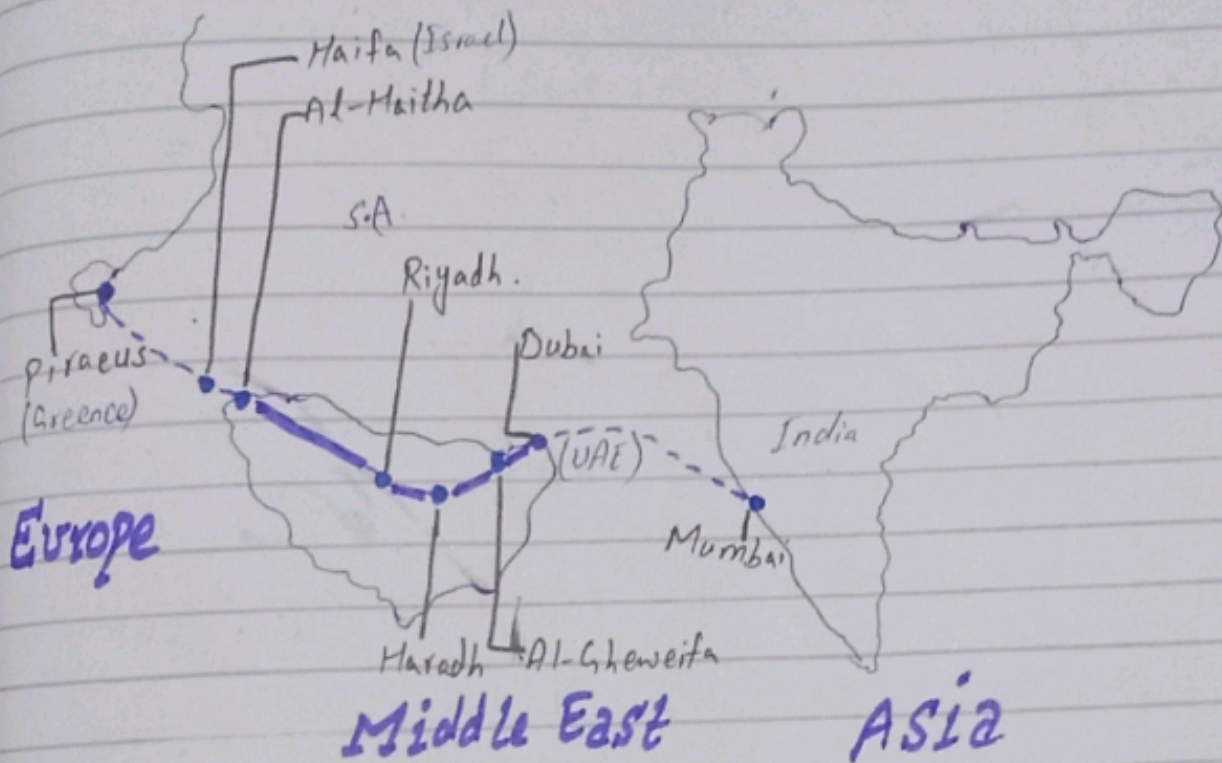 Haifa (Israel)
Al-Haitha
S.A.
Riyadh.
Dubai
Piraeus
(Greence)
(UAE)
India
Mumbai
Europe
Haradh
Al-Gheweifa
Middle East
Asia